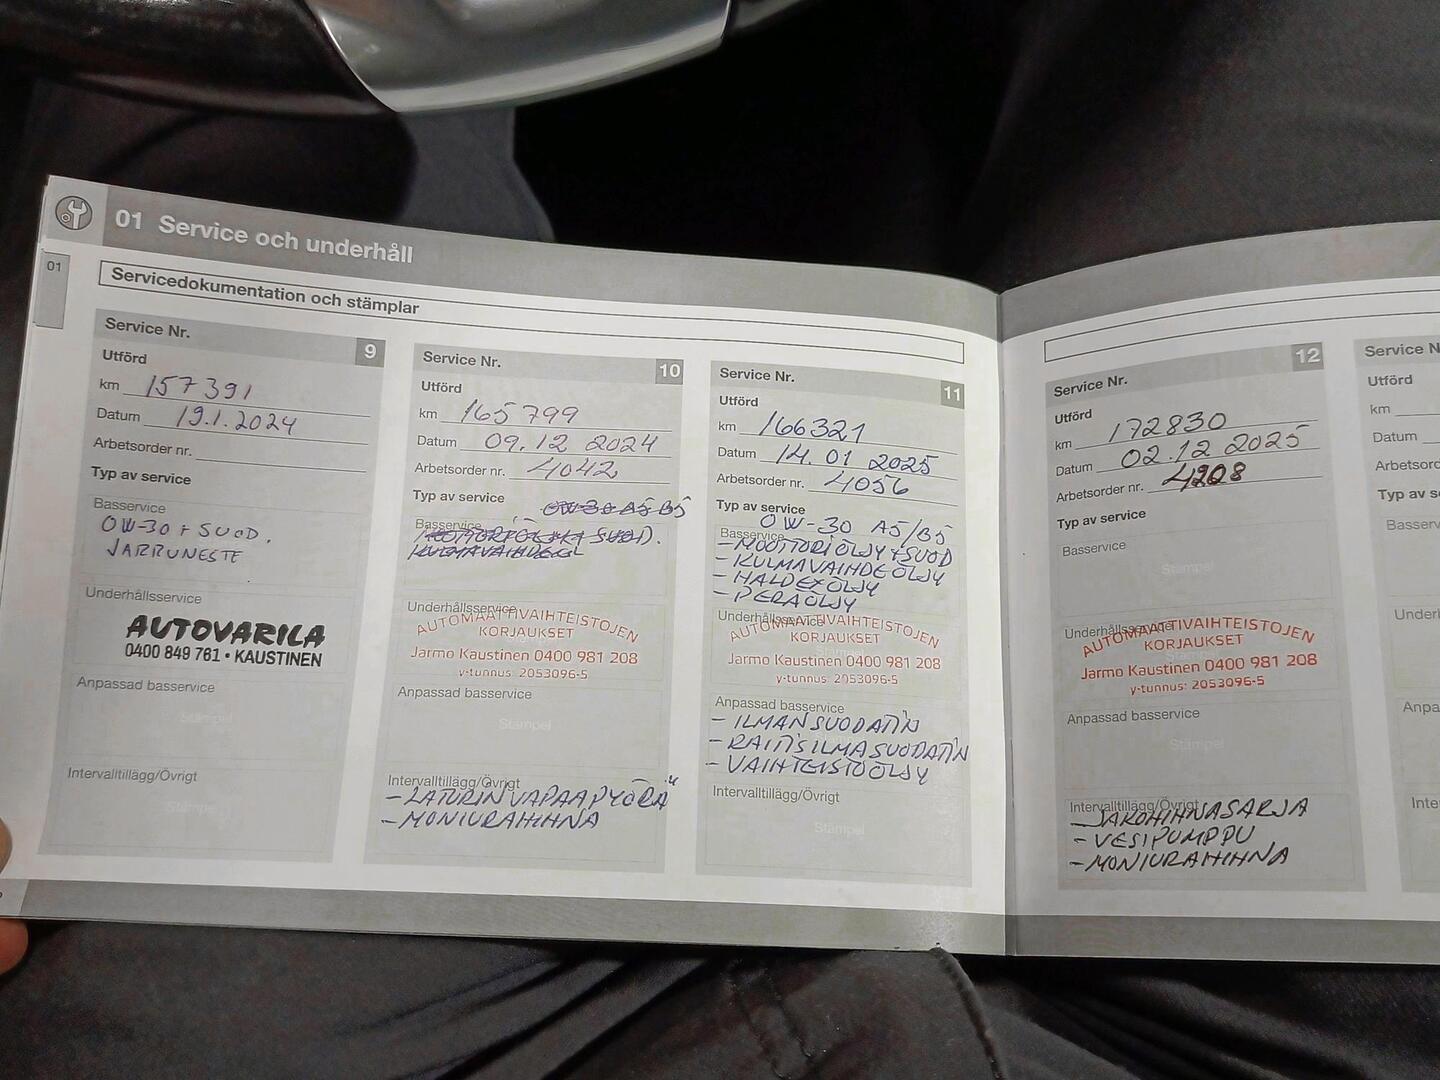 01 Service och underhåll
01
Servicedokumentation och stämplar
Service Nr. 9
Utförd
km 157391
Datum 19.1.2024
Arbetsorder nr.
Typ av service
Basservice
0W-30 + SUOD.
JARRUNESTE
Underhållsservice
AUTOVARILA
0400 849 761 • KAUSTINEN
Anpassad basservice
Stämpel
Intervalltillägg/Övrigt
Stämpel
Service Nr. 10
Utförd
km 165799
Datum 09.12 2024
Arbetsorder nr. 4042
Typ av service
0W-30 A5 B5
Basservice
MOOTTORIÖLJY + SUOD.
Underhållsservice
AUTOMAATTIVAIHTEISTOJEN
KORJAUKSET
Jarmo Kaustinen 0400 981 208
y-tunnus: 2053096-5
Anpassad basservice
Stämpel
Intervalltillägg/Övrigt
- LATURIN VAPAAPYÖRÄ
- MONIURAHIHNA
Service Nr. 11
Utförd
km 166321
Datum 14.01 2025
Arbetsorder nr. 4056
Typ av service
0W-30 A5/B5
Basservice
- MOOTTORIÖLJY + SUOD
- KULMAVAIHDEÖLJY
- HALDEXÖLJY
- PERÄÖLJY
Underhållsservice
AUTOMAATTIVAIHTEISTOJEN
KORJAUKSET
Jarmo Kaustinen 0400 981 208
y-tunnus: 2053096-5
Anpassad basservice
- ILMANSUODATIN
- RAITISILMASUODATIN
- VAIHTEISTOÖLJY
Intervalltillägg/Övrigt
Stämpel
Service Nr. 12
Utförd
km 172830
Datum 02.12 2025
Arbetsorder nr. 4208
Typ av service
Basservice
Stämpel
Underhållsservice
AUTOMAATTIVAIHTEISTOJEN
KORJAUKSET
Jarmo Kaustinen 0400 981 208
y-tunnus: 2053096-5
Anpassad basservice
Stämpel
Intervalltillägg/Övrigt
- JAKOHIHNASARJA
- VESIPUMPPU
- MONIURAHIHNA
Service N
Utförd
km
Datum
Arbetsord
Typ av s
Basserv
Underh
Anpa
Inte